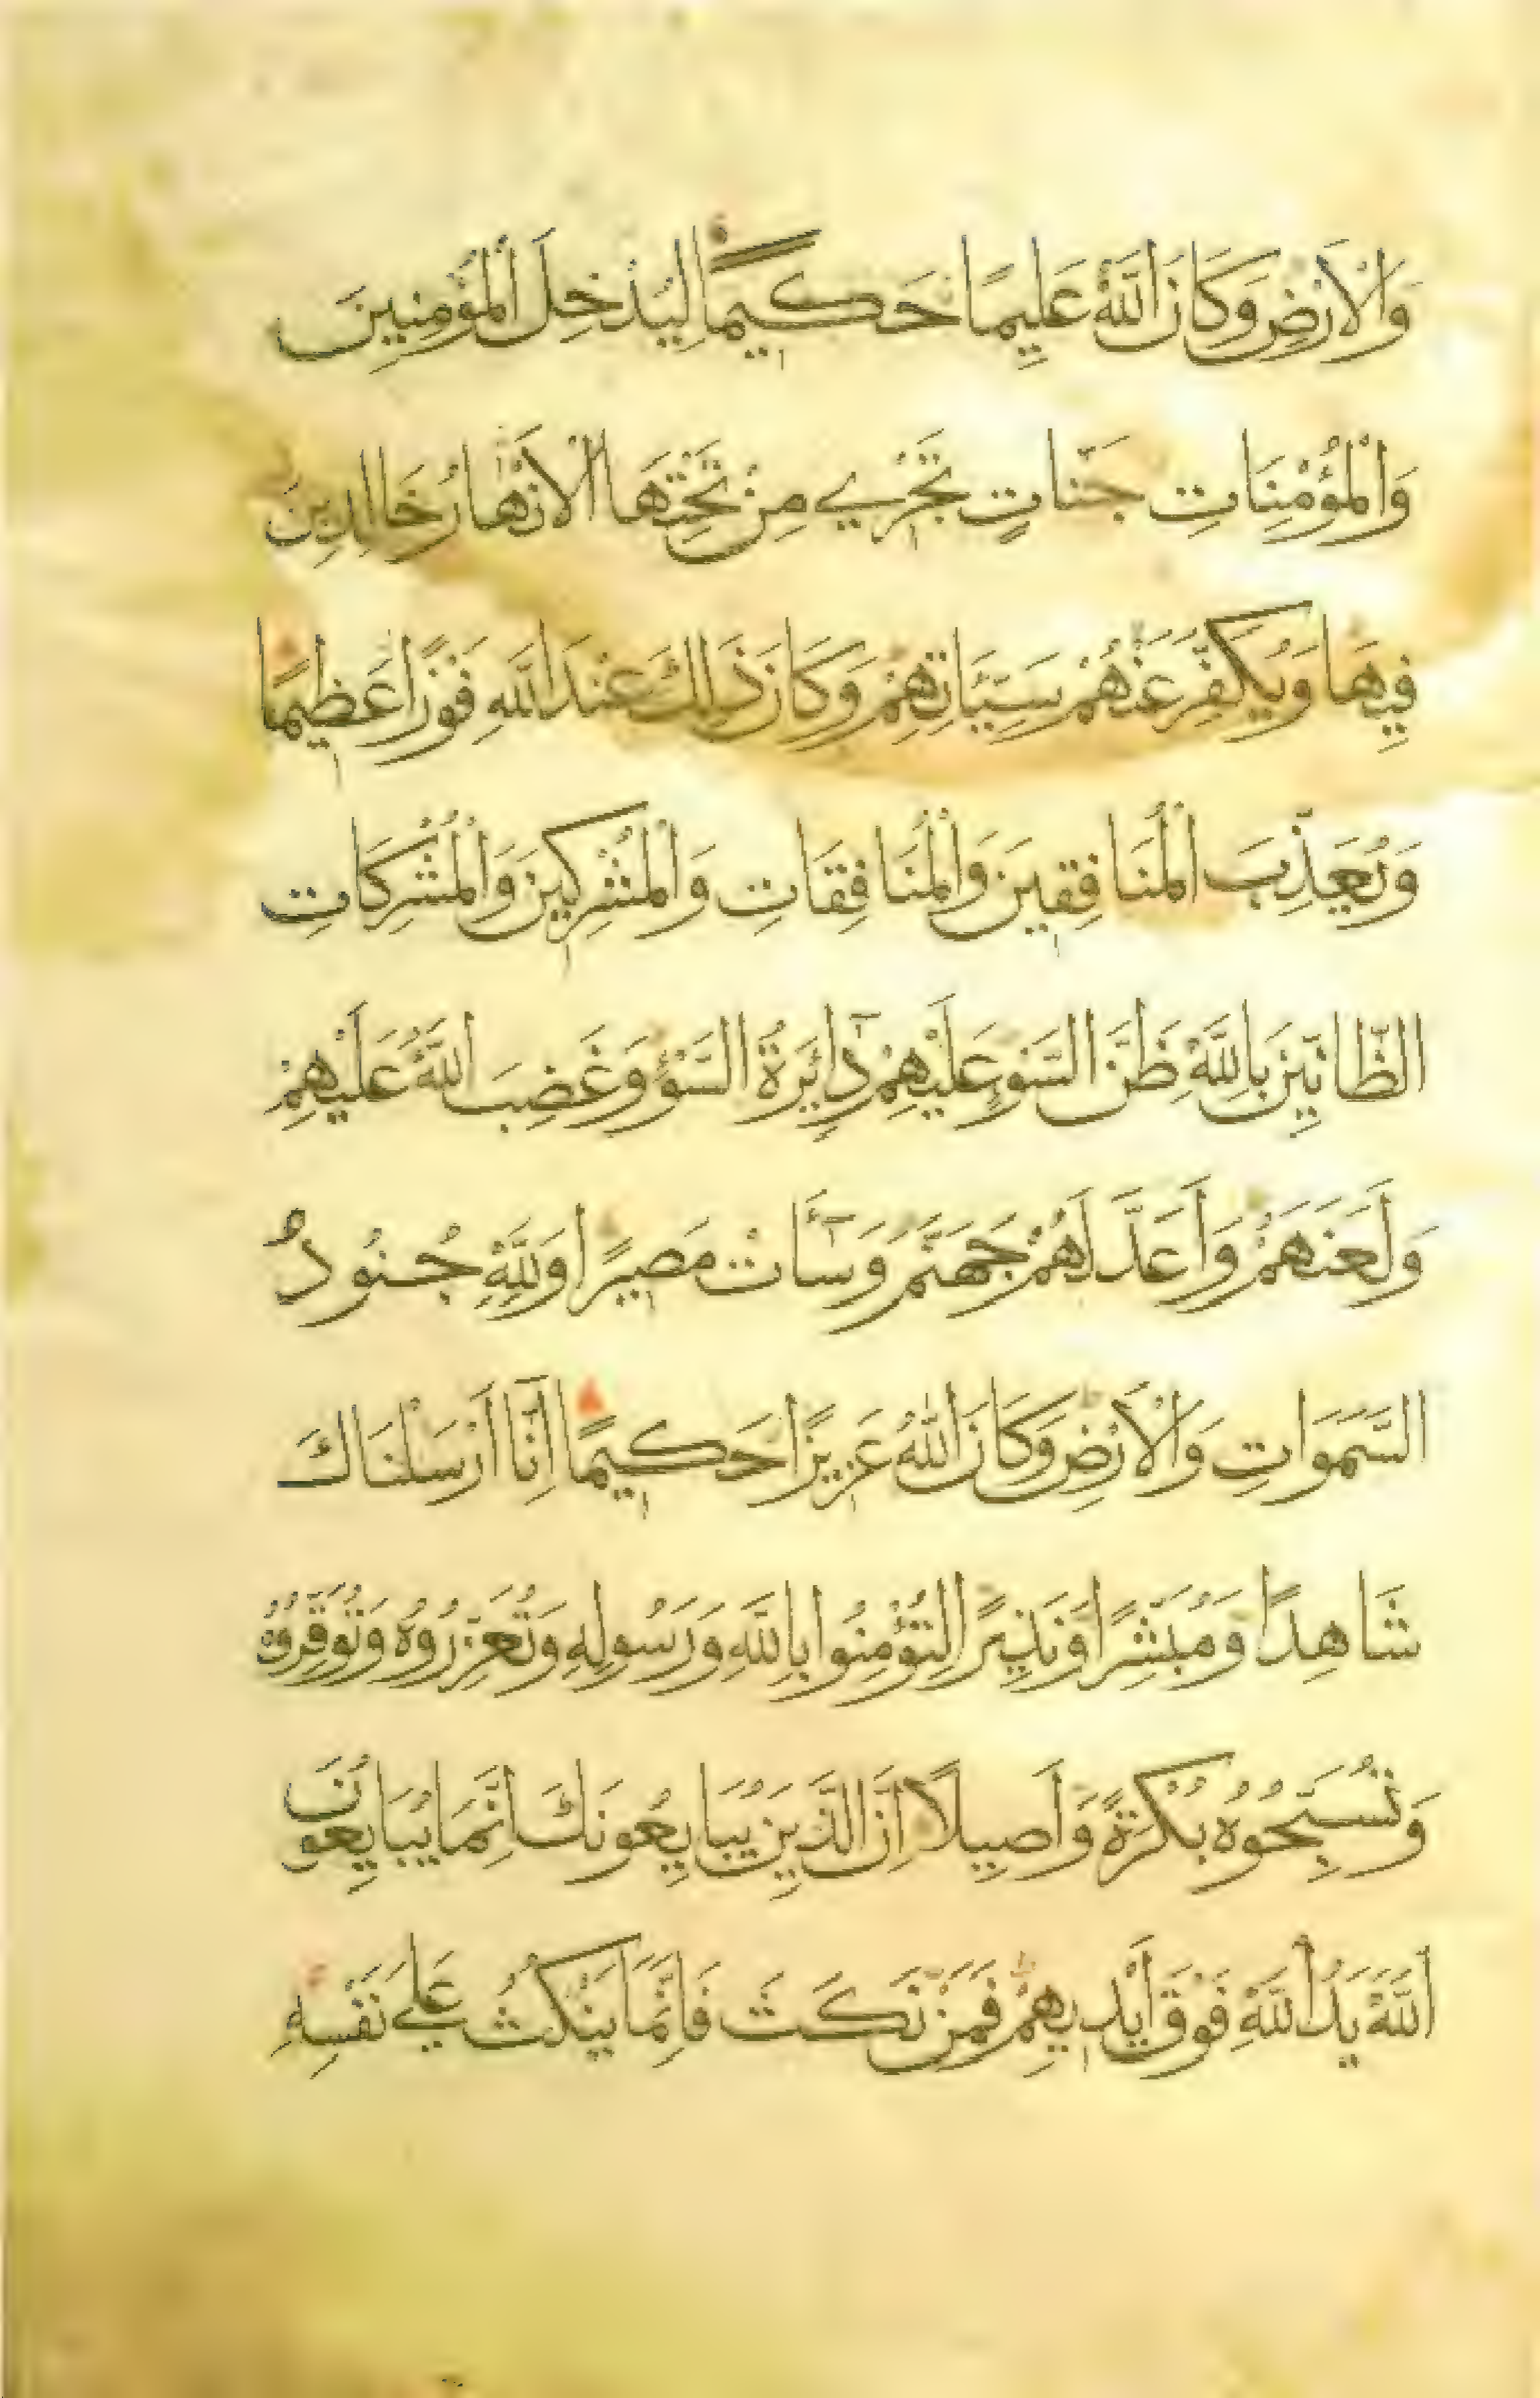 وَالْاَرْضِ وَكَانَ اللّٰهُ عَلِيمًا حَكِيمًا لِيُدْخِلَ الْمُؤْمِنِينَ
وَالْمُؤْمِنَاتِ جَنَّاتٍ تَجْرِي مِنْ تَحْتِهَا الْاَنْهَارُ خَالِدِينَ
فِيهَا وَيُكَفِّرَ عَنْهُمْ سَيِّئَاتِهِمْ وَكَانَ ذَلِكَ عِنْدَ اللّٰهِ فَوْزًا عَظِيمًا
وَيُعَذِّبَ الْمُنَافِقِينَ وَالْمُنَافِقَاتِ وَالْمُشْرِكِينَ وَالْمُشْرِكَاتِ
الظَّانِّينَ بِاللّٰهِ ظَنَّ السَّوْءِ عَلَيْهِمْ دَائِرَةُ السَّوْءِ وَغَضِبَ اللّٰهُ عَلَيْهِمْ
وَلَعَنَهُمْ وَاَعَدَّ لَهُمْ جَهَنَّمَ وَسَآءَتْ مَصِيرًا وَلِلّٰهِ جُنُودُ
السَّمَوَاتِ وَالْاَرْضِ وَكَانَ اللّٰهُ عَزِيزًا حَكِيمًا اِنَّآ اَرْسَلْنَاكَ
شَاهِدًا وَمُبَشِّرًا وَنَذِيرًا لِتُؤْمِنُوا بِاللّٰهِ وَرَسُولِهِ وَتُعَزِّرُوهُ وَتُوَقِّرُوهُ
وَتُسَبِّحُوهُ بُكْرَةً وَاَصِيلًا اِنَّ الَّذِينَ يُبَايِعُونَكَ اِنَّمَا يُبَايِعُونَ
اللّٰهَ يَدُ اللّٰهِ فَوْقَ اَيْدِيهِمْ فَمَنْ نَكَثَ فَاِنَّمَا يَنْكُثُ عَلَى نَفْسِهِ